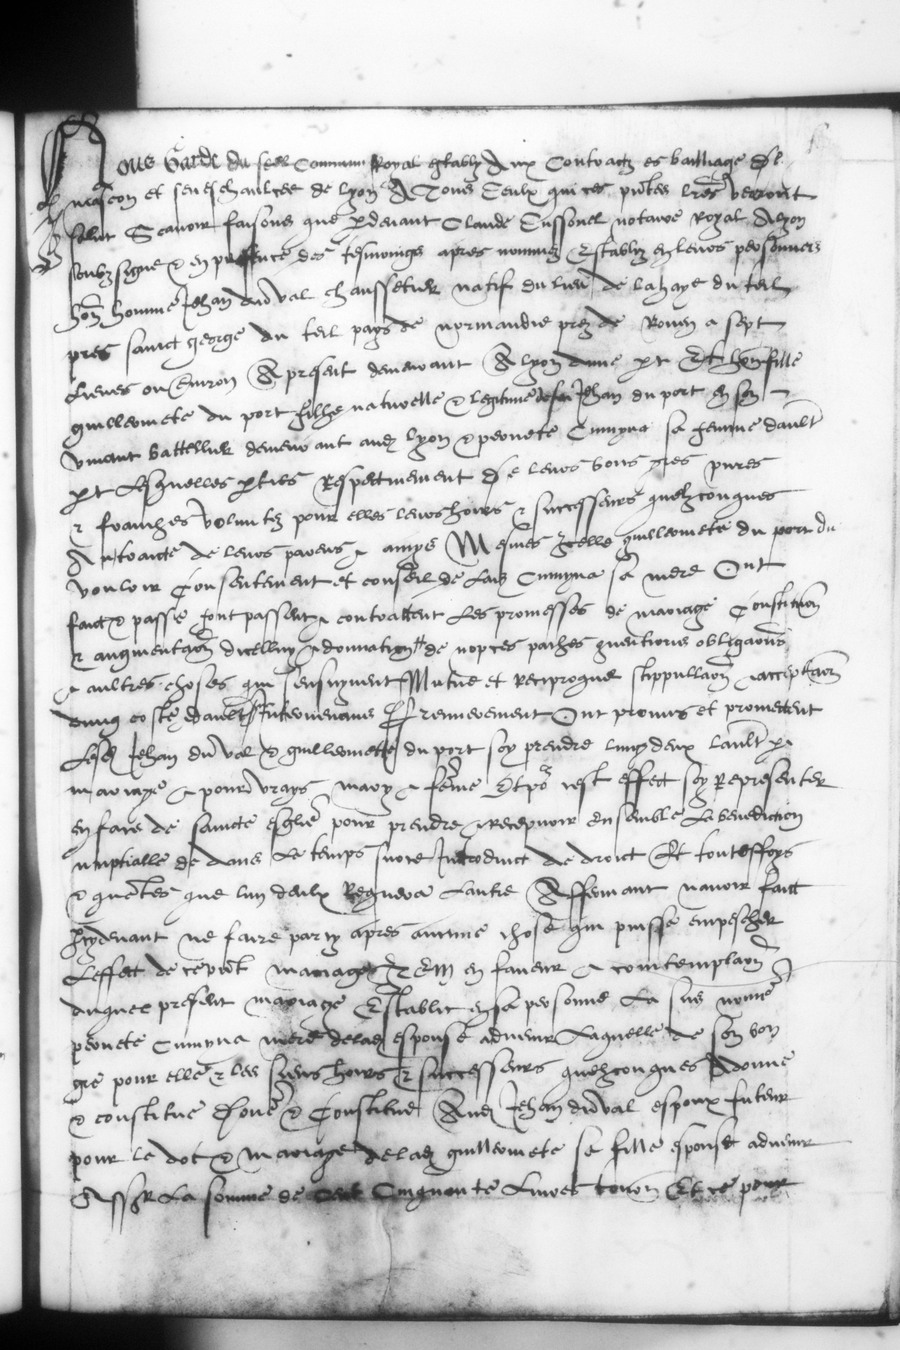 Nous Garde du seel Commun Royal establly Aux Contractz es bailliage de
mascon et seneschaulcee de lyon A Tous Ceulx qui ces pntes lres verront
salut Scavoir faisons que pdevant Claude Cussonel notaire Royal A lyon
soubzsigne & en presence des tesmoings apres nommez Establiz en leurs personnes
hon homme Jehan du val chaussetier natif du lieu de la haye du teil
pres sainct george du teil pays de normandie prez de Rouen a sept
Lieues ou Environ A present demeurant A lyon dune pt Et hon fille
guillermete du port fille naturelle & legitime de feu Jehan du port en son
vivant battellier demeurant audz lyon & pernete Cumyna sa femme daultre
pt Lesquelles pties Respectivement de leurs bons grez pures
& franches voluntez pour elles leurs hoirs & successeurs quelzconques
Auctorite de leurs parens & amys Mesmes Icelle guillermete du port du
vouloir Consentement et conseil de lad Cumyna sa mere Ont
faict & passe font passent & contractent Les promesses de mariage Constitution
& augmentaon dicelluy & donnation de nopces paches quictions obligaons
& aultres choses qui sensuyvent Mutue et Reciproque stippullaon & acceptaon
dung coste & daultre Intervenans Premierement Ont promis et promettent
Lesd Jehan du val & guillermette du port soy prendre lung deux laultre p
mariage & pour vrays mary & feme Et po cest effect soy Representer
en face de saincte esglise pour prendre & recepvoir ensemble La benediction
nuptialle dedans Le temps sur ce Introduict de droict Et touteffoys
& quantes que lun deulx Requerra Lautre Affermant navoir faict
Cydevant ne faire par cy apres aucune chose qui puisse empescher
Leffect de ce pnt mariage Et Em en faveur & contemplaon
duquel present mariage Establie en sa personne La sus nomee
pernete Cumyna mere de lad espouse advenir Laquelle de son bon
gre pour elle & les siens hoirs & successeurs quelzconques A donne
& constitue donne & Constitue Aud Jehan du val espoux futeur
pour le dot & mariage de lad guillermete sa fille espouse advenir
Assr La somme de Cinquante Livres tourn Et ce pour